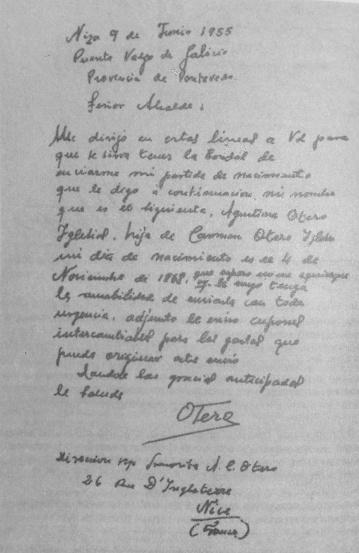 Niza 9 de Junio 1955
Puente Valga de Galicia
Provencia de Pontevedra
Señor Alcalde:
Me dirigo en estas lineas a Vd para
que se sirva tener la bondad de
enviarme mi partida de nacimiento
que le digo a continuacion mi nombre
que es el siguiente, Agustina Otero
Iglesias, hija de Carmen Otero Iglesias
mi dia de nacimiento es el 4 de
Noviembre de 1868, que espero
tenga
la amabilidad de enviarla con toda
urgencia, adjunto le envio cupones
intercambiables para los gastos que
pueda originar este envio
Dandole las gracias anticipadas
le saluda
Otero
Direccion Señorita A. C. Otero
26 Rue D'Ingleterre
Nice
(France)